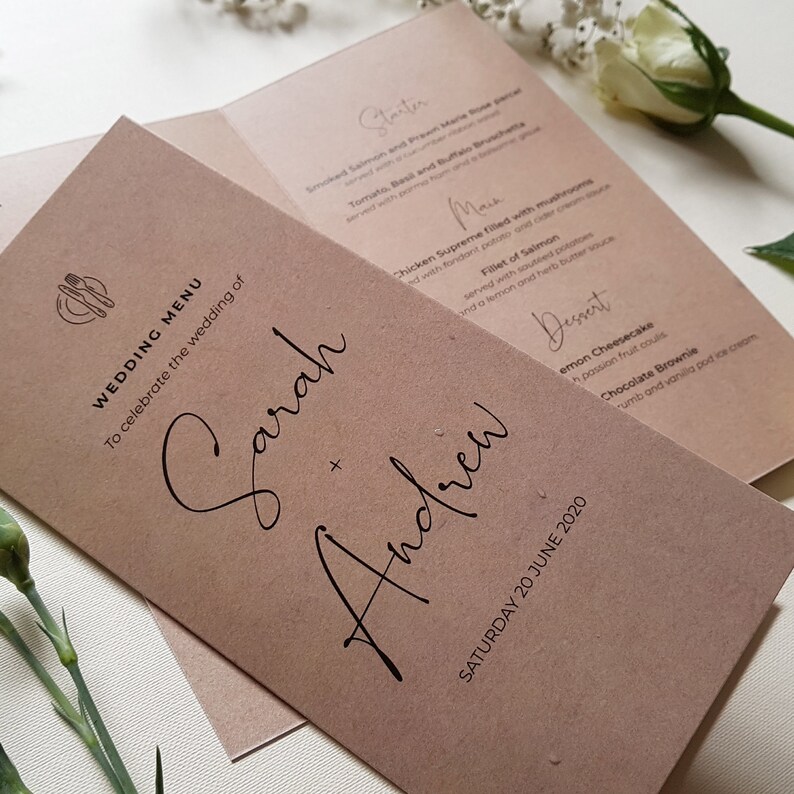 WEDDING MENU
To celebrate the wedding of
Sarah
+
Andrew
SATURDAY 20 JUNE 2020
Starter
Smoked Salmon and Prawn Marie Rose parcel
served with a cucumber ribbon salad.
Tomato, Basil and Buffalo Bruschetta
served with parma ham and a balsamic glaze.
Main
Chicken Supreme filled with mushrooms
with fondant potato and cider cream sauce
Fillet of Salmon
served with sautéed potatoes
and a lemon and herb butter sauce.
Dessert
Cheesecake
passion fruit coulis.
Chocolate Brownie
and vanilla pod ice cream